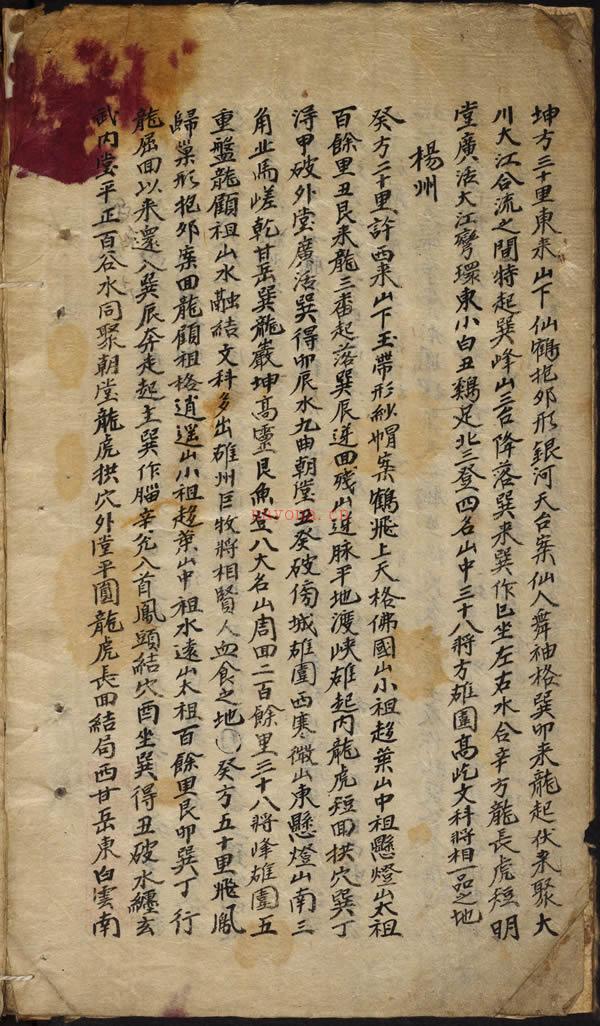 坤方三十里東來山下仙鶴抱卵形銀河天台案仙人舞袖格巽卯來龍起伏來聚大
川大江合流之間特起巽峰山三台降落巽來巽作巳坐左右水合辛方龍長虎短明
堂廣活大江彎環東小白丑鷄足北三登四名山中三十八將方雄圍高屹文科將相一品之地
楊州
癸方二十里許西來山下玉帶形紗帽案鶴飛上天格佛國山小祖超葉山中祖懸燈山太祖
百餘里丑艮來龍三番起落巽辰逆回殘山迸脉平地渡峽雄起內龍虎短回拱穴巽丁
淂甲破外堂廣活巽得卯辰水九曲朝堂丑癸破傍城雄圍西寒微山東懸燈山南三
角北馬嵯乾甘岳巽龍巖坤高靈艮魚登八大名山周回二百餘里三十八將峰雄圍五
重盤龍顧祖山水融結文科多出雄州巨牧將相賢人血食之地○癸方五十里飛鳳
歸巢形抱卵案回龍顧祖格逍遥山小祖超葉山中祖水遠山太祖百餘里艮卯巽丁行
龍屈曲以來還入巽辰奔走起主巽作腦辛兌入首鳳頭結穴酉坐巽得丑破水纏玄
武內堂平正百谷水同聚朝堂龍虎拱穴外堂平圓龍虎長回結局西甘岳東白雲南